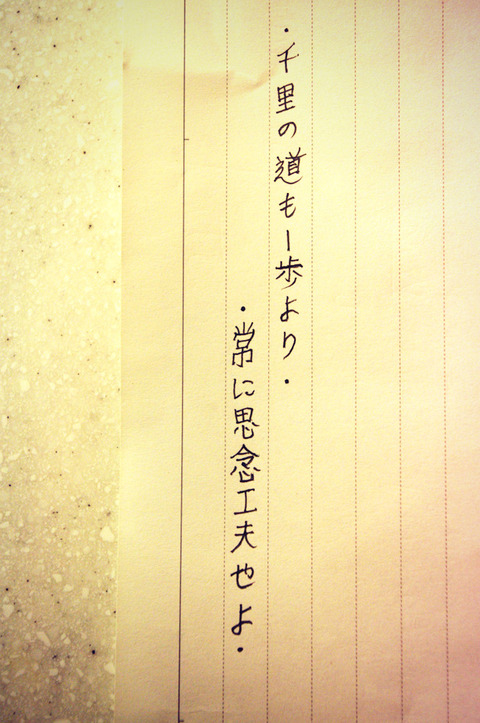 ・千里の道も一歩より・
・常に思念工夫せよ・